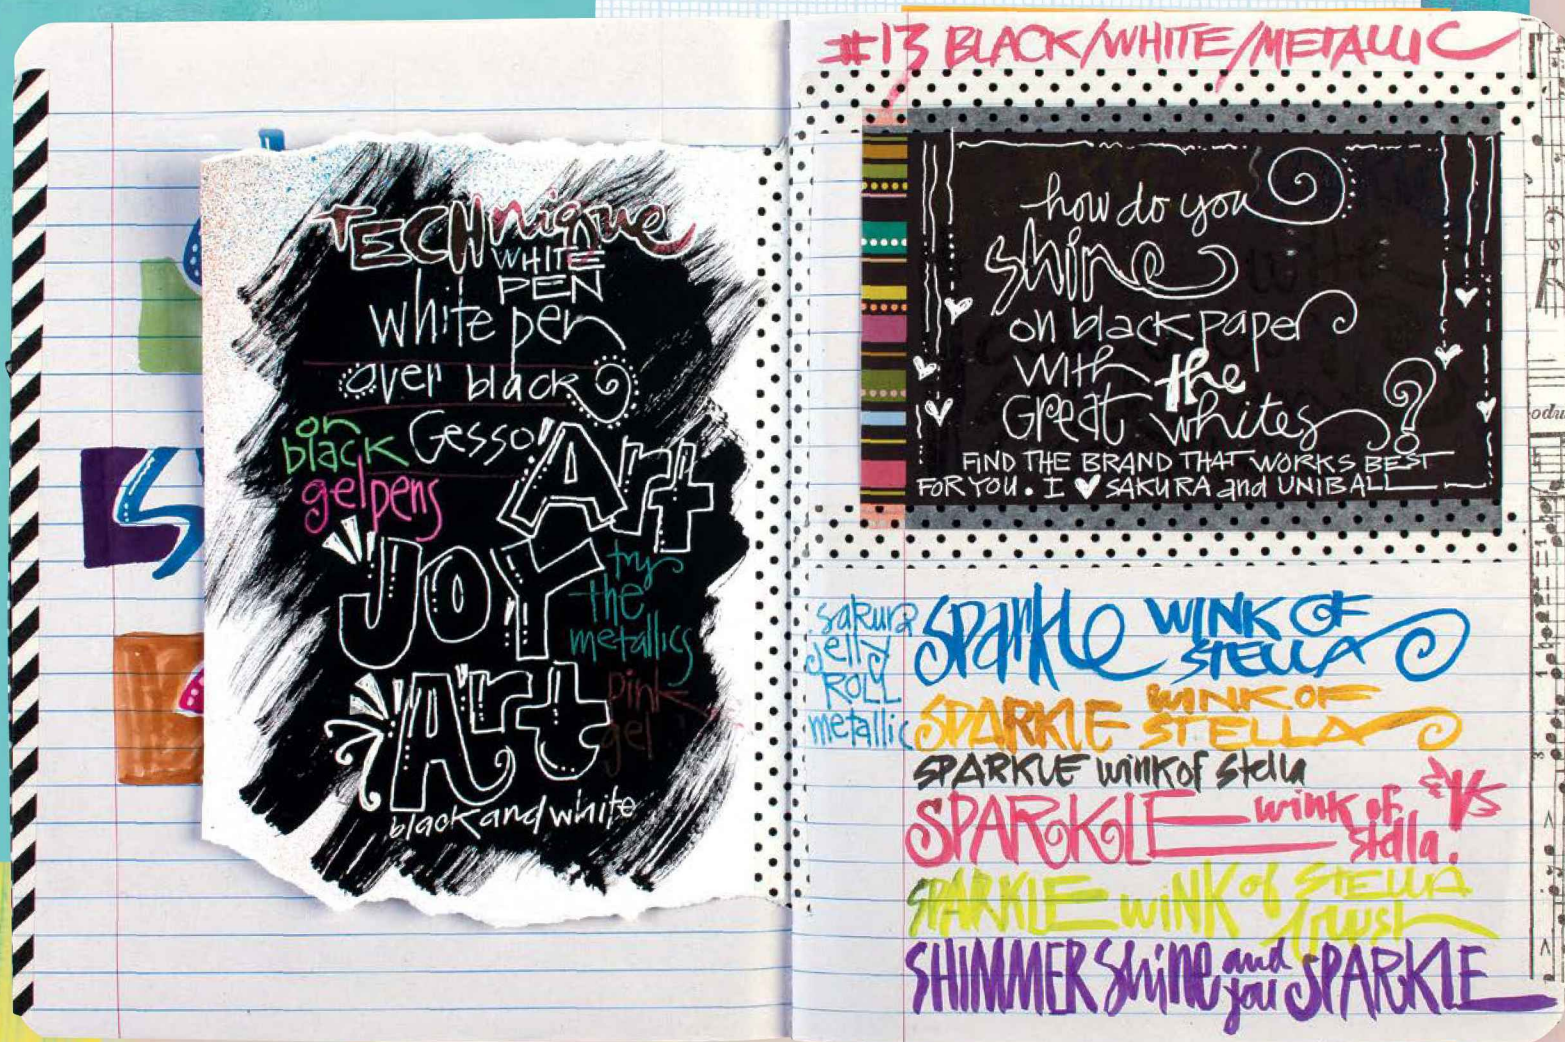 TECHnique
WHITE
PEN
white pen
over black
Gesso
on
black
gelpens
Art
JOY
try
the
metallics
Art
pink
gel
black and white
#13 BLACK/WHITE/METALLIC
how do you
shine
on black paper
with the
Great whites?
FIND THE BRAND THAT WORKS BEST
FOR YOU. I ♥ SAKURA and UNIBALL
sakura
Jelly
ROLL
metallic
Sparkle WINK OF
STELLA
SPARKLE WINK OF
STELLA
SPARKLE wink of Stella
SPARKLE wink of
stella.
SPARKLE WINK of STELLA
Brush
SHIMMER Shine and
you SPARKLE